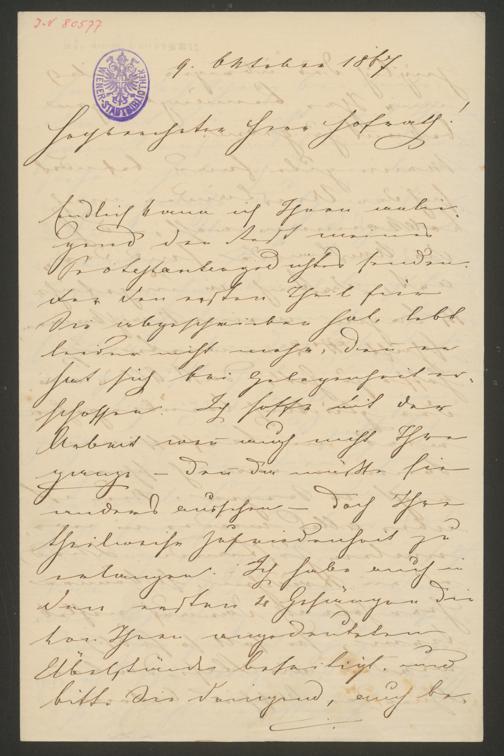 J.N. 80577
WIENER-STADTBIBLIOTHEK
9. Oktober 1867
Hochverehrter Herr Hofrath!
Endlich kann ich Ihnen anlie-
gend den Rest meines
Protestantengedichtes senden.
Der den ersten Theil für
Sie abgeschrieben hat, lebt
leider nicht mehr, den er
hat sich bei Gelegenheit er-
schossen. Ich hoffe mit der
Arbeit wen auch nicht Ihre
ganze – den da müßte sie
anders aussehen – doch Ihre
theilweise Zufriedenheit zu
erlangen. Ich habe auch in
den ersten Gesängen die
von Ihnen angedeuteten
Übelstände beseitigt, und
bitte Sie dringend, auch be-